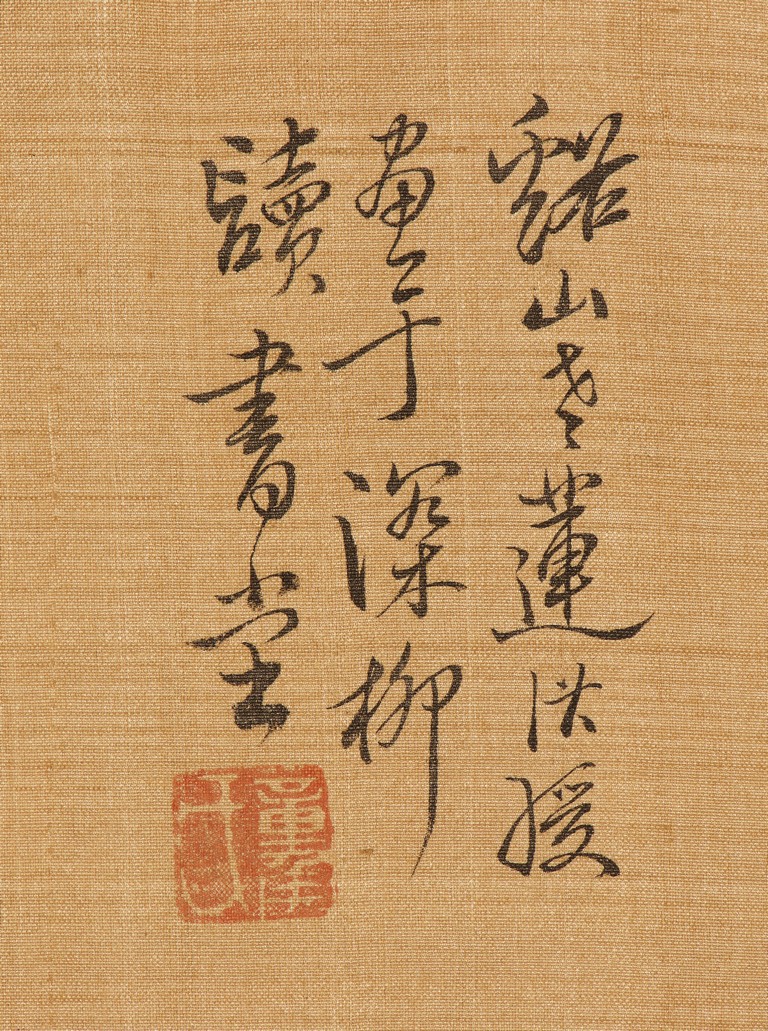 谿山老蓮洪綬
畫于深柳
讀書堂
章侯